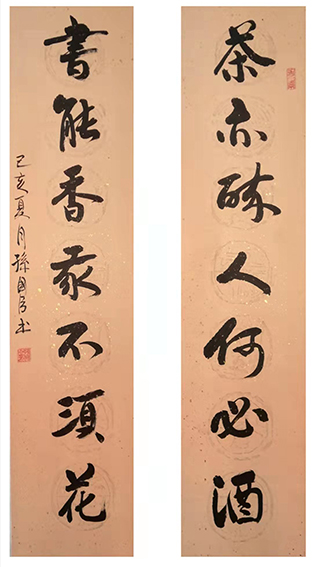 茶亦醉人何必酒
書能香我不須花
己亥夏月孫国书